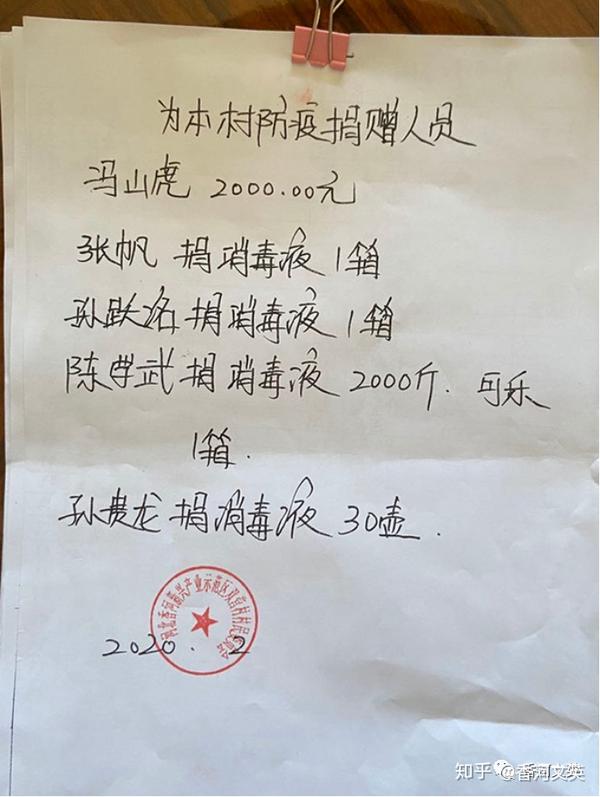 为本村防疫捐赠人员
冯山虎 2000.00元
张帆 捐消毒液 1箱
孙跃洺 捐消毒液 1箱
陈学武 捐消毒液 2000斤. 可乐
1箱.
孙贵龙 捐消毒液 30壶.
河北香河新兴产业示范区双营村村民委员会
2020.2
知乎 @香河文英